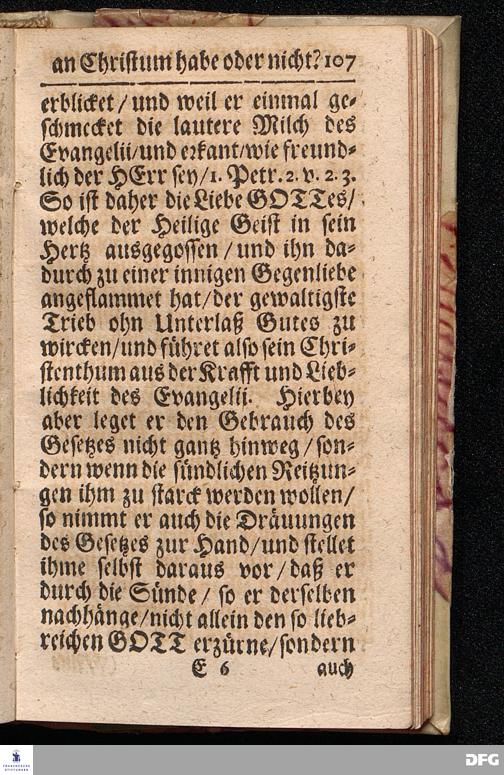 an Christum habe oder nicht? 107
erblicket / und weil er einmal ge-
schmecket die lautere Milch des
Evangelii / und erkant / wie freund-
lich der HErr sey / 1. Petr. 2. v. 2. 3.
So ist daher die Liebe GOTTes /
welche der Heilige Geist in sein
Hertz ausgegossen / und ihn da-
durch zu einer innigen Gegenliebe
angeflammet hat / der gewaltigste
Trieb ohn Unterlaß Gutes zu
wircken / und führet also sein Chri-
stenthum aus der Krafft und Lieb-
lichkeit des Evangelii. Hierbey
aber leget er den Gebrauch des
Gesetzes nicht gantz hinweg / son-
dern wenn die sündlichen Reitzun-
gen ihm zu starck werden wollen /
so nimmt er auch die Dräuungen
des Gesetzes zur Hand / und stellet
ihme selbst daraus vor / daß er
durch die Sünde / so er derselben
nachhänge / nicht allein den so lieb-
reichen GOTT erzürne / sondern
E 6 auch
FRANCKESCHE STIFTUNGEN
DFG